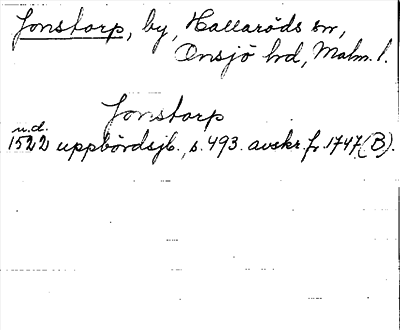 Jonstorp, by, Hallaröds sn,
Onsjö hrd, Malm. l.
Jonstorp
u.d.
1522 uppbördsjb., s. 493. avskr. fr. 1747 (B).